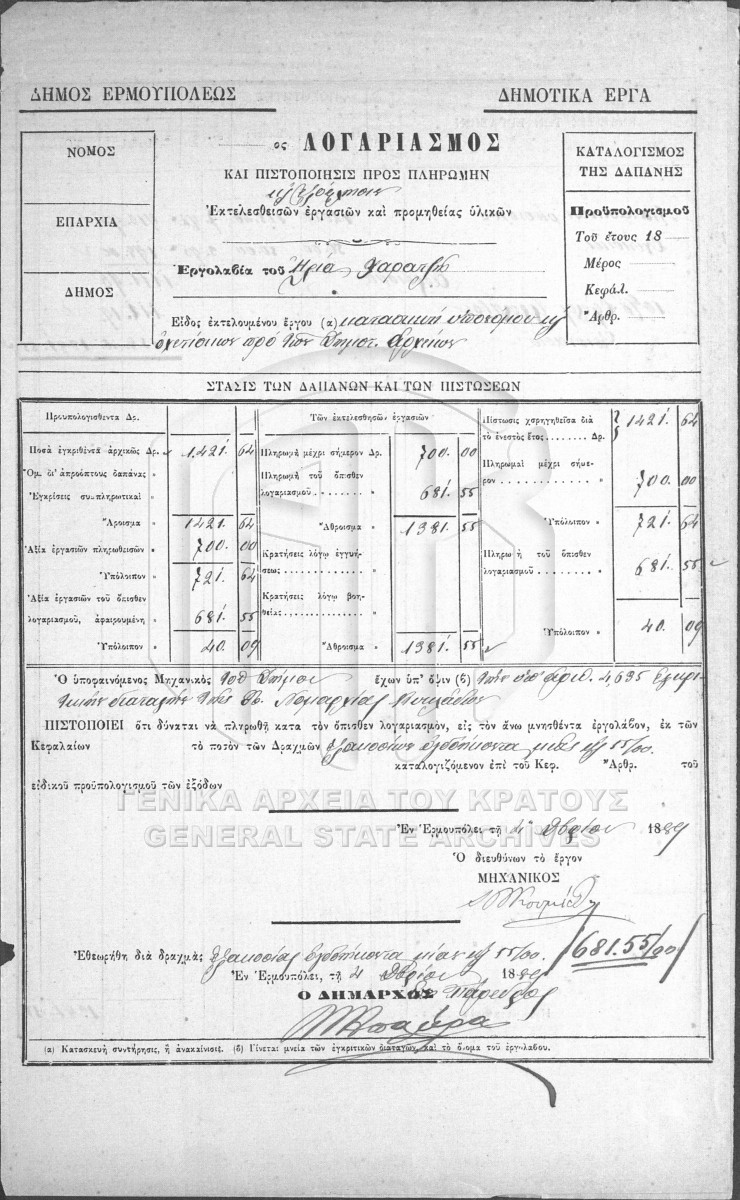 ΔΗΜΟΣ ΕΡΜΟΥΠΟΛΕΩΣ
ΔΗΜΟΤΙΚΑ ΕΡΓΑ
ΝΟΜΟΣ
ΕΠΑΡΧΙΑ
ΔΗΜΟΣ
ος ΛΟΓΑΡΙΑΣΜΟΣ
ΚΑΙ ΠΙΣΤΟΠΟΙΗΣΙΣ ΠΡΟΣ ΠΛΗΡΩΜΗΝ
Ἐκτελεσθεισῶν ἐργασιῶν καὶ προμηθείας ὑλικῶν
Ἐργολαβία τοῦ Ηλία
Εἶδος ἐκτελουμένου ἔργου (α) κατασκευή υπονόμου
πρό των Δημοτ.
ΚΑΤΑΛΟΓΙΣΜΟΣ
ΤΗΣ ΔΑΠΑΝΗΣ
Προϋπολογισμοῦ
Τοῦ ἔτους 18
Μέρος
Κεφάλ.
Ἄρθρ.
ΣΤΑΣΙΣ ΤΩΝ ΔΑΠΑΝΩΝ ΚΑΙ ΤΩΝ ΠΙΣΤΩΣΕΩΝ
Προυπολογισθεντα Δρ.
Ποσὰ ἐγκριθέντα ἀρχικῶς Δρ. 1421. 64
Ὁμ. δι' ἀπροόπτους δαπάνας "
Ἐγκρίσεις συμπληρωτικαὶ "
Ἄροισμα " 1421. 64
Ἀξία ἐργασιῶν πληρωθεισῶν " 700. 00
Ὑπόλοιπον " 721. 64
Ἀξία ἐργασιῶν τοῦ ὄπισθεν
λογαριασμοῦ, ἀφαιρουμένη " 681. 55
Ὑπόλοιπον " 40. 09
Τῶν ἐκτελεσθησῶν ἐργασιῶν
Πληρωμὴ μέχρι σήμερον Δρ. 700. 00
Πληρωμὴ τοῦ ὄπισθεν
λογαριασμοῦ " 681. 55
Ἄθροισμα " 1381. 55
Κρατήσεις λόγῳ ἐγγυή-
σεως "
Κρατήσεις λόγῳ βοη-
θείας "
Ἄθροισμα " 1381. 55
Πίστωσις χορηγηθεῖσα διὰ
τὸ ἐνεστὸς ἔτος Δρ. 1421. 64
Πληρωμαὶ μέχρι σήμε-
ρον 700. 00
Ὑπόλοιπον " 721. 64
Πληρωμὴ τοῦ ὄπισθεν
λογαριασμοῦ " 681. 55
Ὑπόλοιπον " 40. 09
Ὁ ὑποφαινόμενος Μηχανικὸς του Δήμου ἔχων ὑπ' ὄψιν (β) την υπ' αριθ. 4,635 εγκρι-
τικήν διαταγήν της Β. Νομαρχίας Κυκλάδων
ΠΙΣΤΟΠΟΙΕΙ ὅτι δύναται νὰ πληρωθῇ κατα τὸν ὄπισθεν λογαριασμὸν, εἰς τὸν ἄνω μνησθέντα ἐργολάβον, ἐκ τῶν
Κεφαλαίων τὸ ποσὸν τῶν Δραχμῶν εξακοσίων ογδοήκοντα μιας 55/00.
καταλογιζόμενον ἐπὶ τοῦ Κεφ. Ἄρθρ. τοῦ
εἰδικοῦ προϋπολογισμοῦ τῶν ἐξόδων
ΓΕΝΙΚΑ ΑΡΧΕΙΑ ΤΟΥ ΚΡΑΤΟΥΣ
GENERAL STATE ARCHIVES
Ἐν Ἑρμουπόλει τῇ 4 1889
Ὁ διευθύνων τὸ ἔργον
ΜΗΧΑΝΙΚΟΣ
Ἐθεωρήθη διὰ δραχμὰς εξακοσίας ογδοήκοντα μίαν 55/00. 681.55/00
Ἐν Ἑρμουπόλει, τῇ 4 1889
Ο ΔΗΜΑΡΧΟΣ
(α) Κατασκευὴ συντήρησις, ἢ ἀνακαίνισις. (β) Γίνεται μνεία τῶν ἐγκριτικῶν διαταγῶν, καὶ τὸ ὄνομα τοῦ ἐργολάβου.